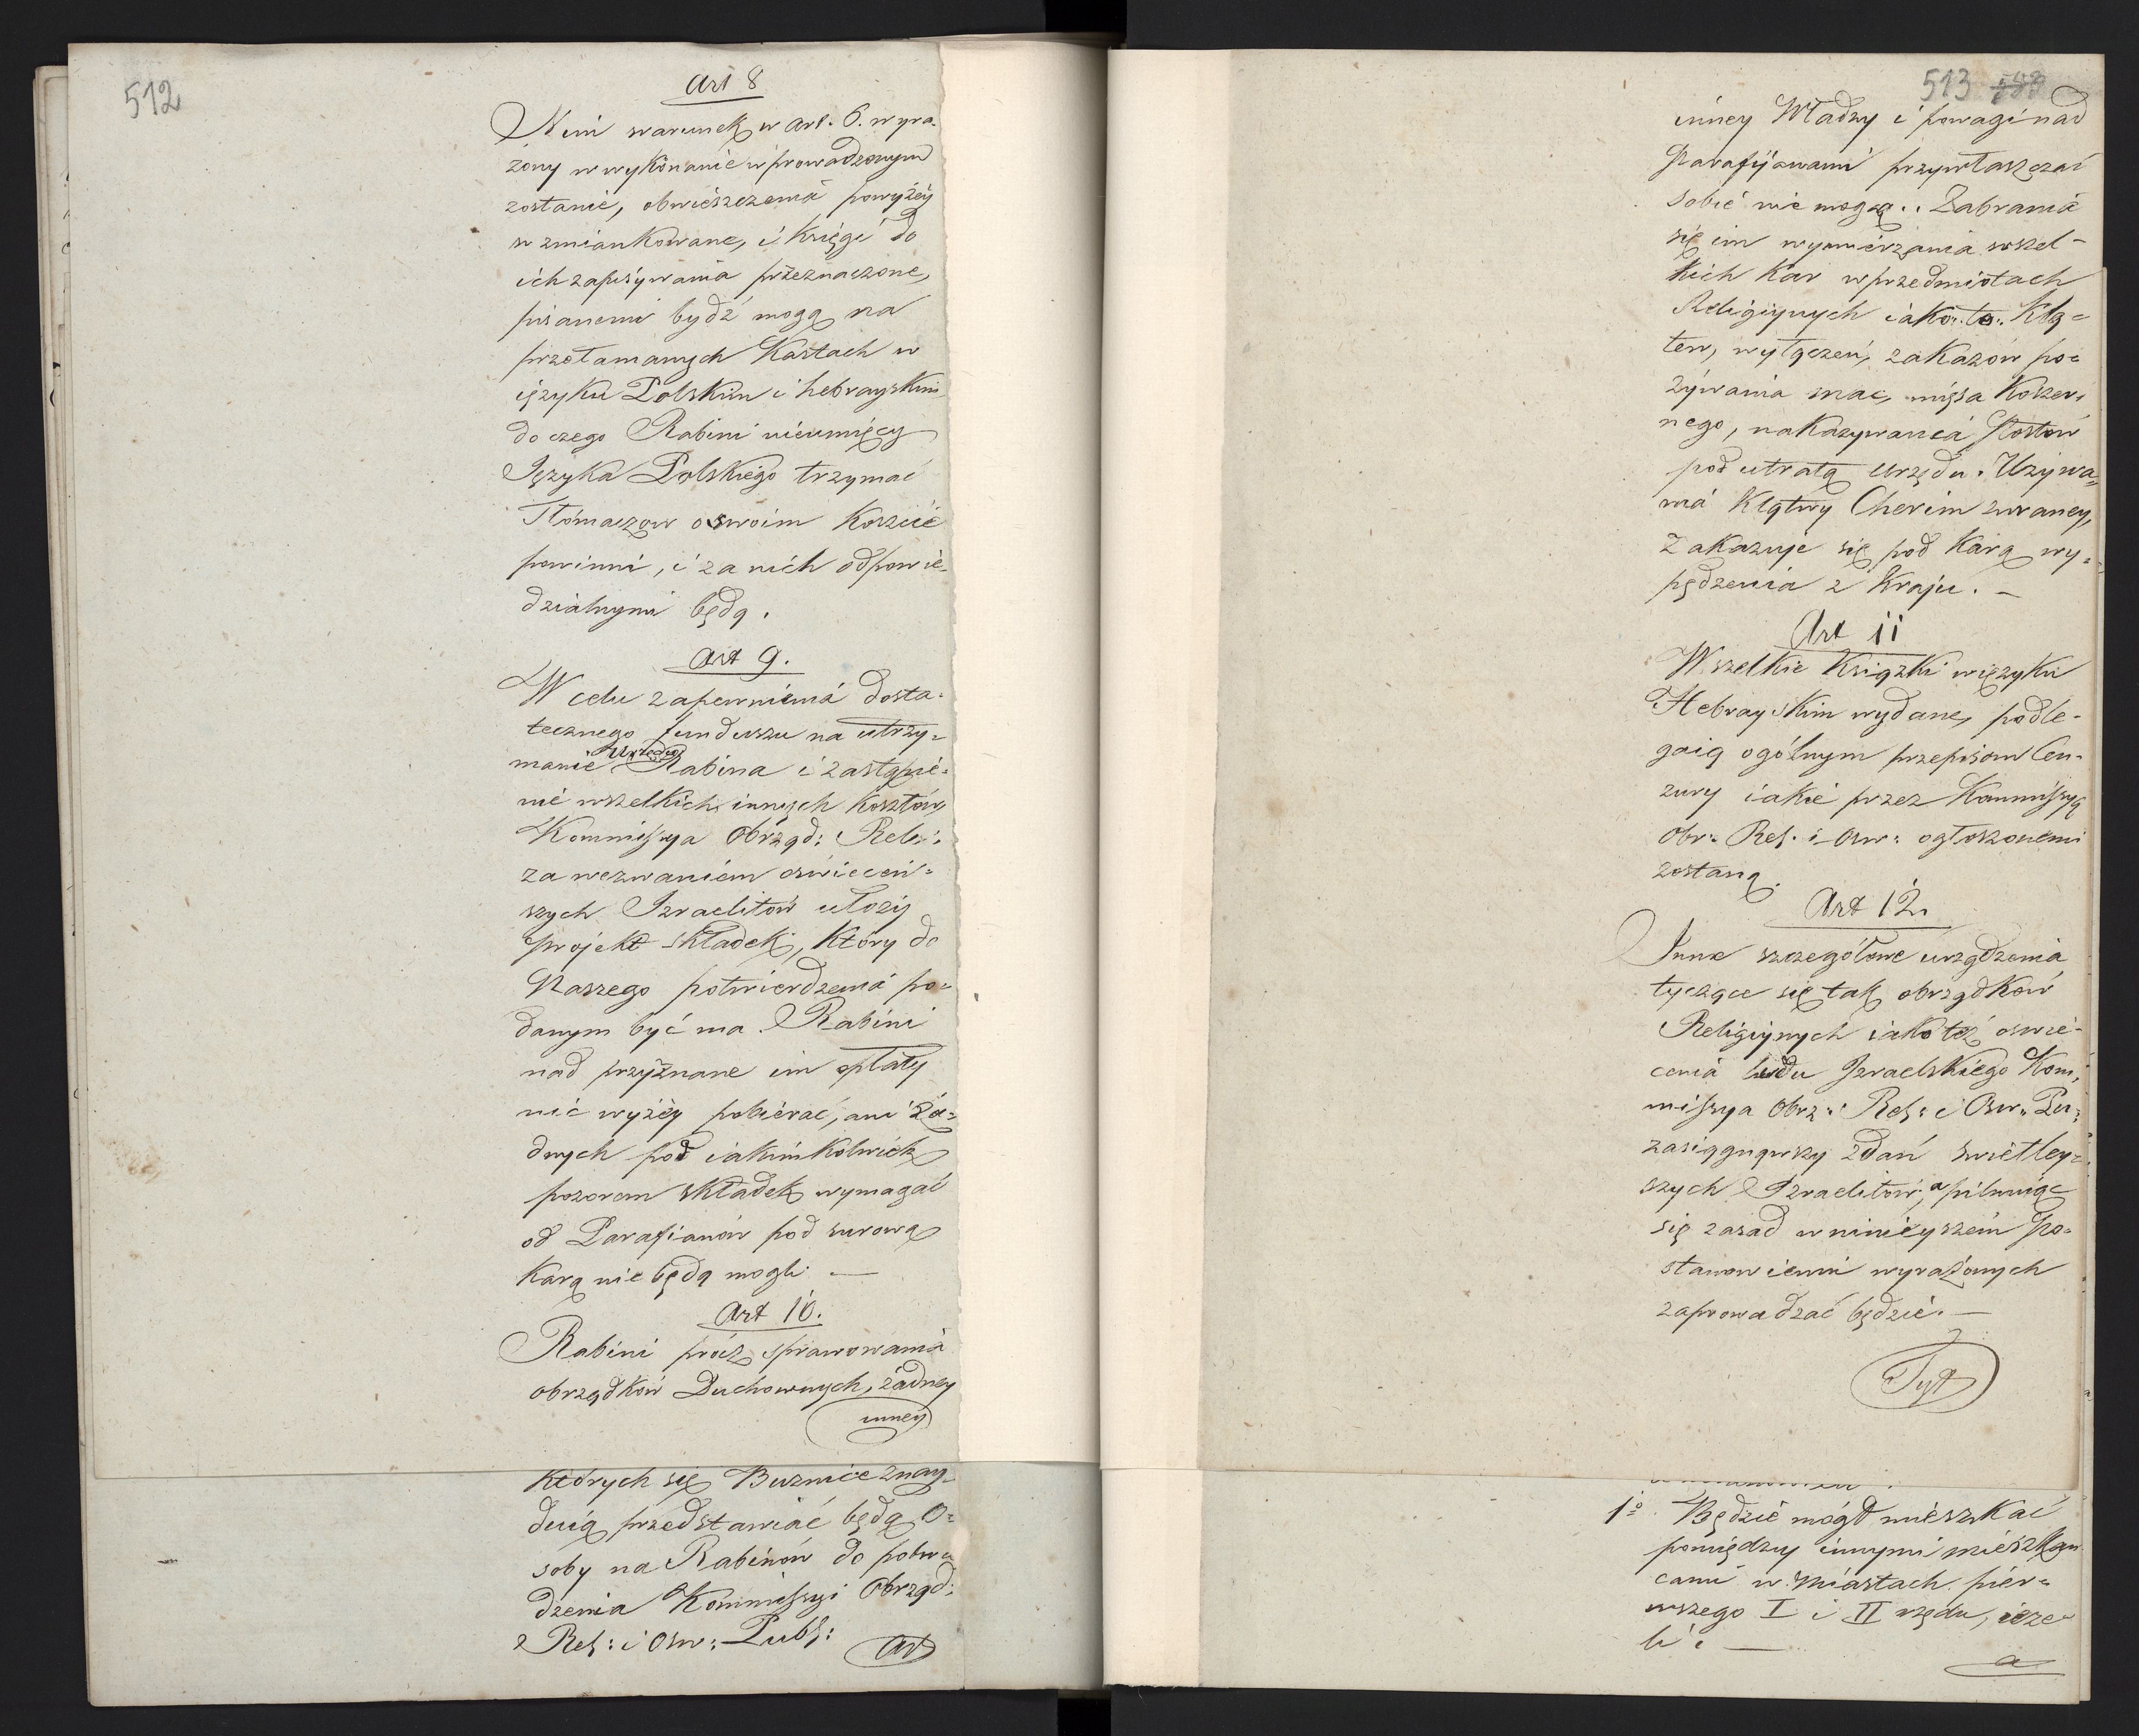 512
Art 8
Nim warunek w Art. 6. wyra-
żony w wykonanie wprowadzonym
zostanie, obwieszczenia powyżey
wzmiankowane, i Księgi do
ich zapisywania przeznaczone,
pisanemi bydź mogą na
przełamanych Kartach w
ięzyku Polskim i hebrayskim,
do czego Rabini nieumięcy
Języka Polskiego trzymać
Tłómaczow o swoim Koszcie
powinni, i za nich odpowie-
dzialnymi będą.
Art 9.
W celu zapewnienia dosta-
tecznego funduszu na utrzy-
manie Urzędu Rabina i zastąpie-
nie wszelkich innych kosztów,
Kommissya Obrząd: Rel:
za wezwaniem oświeceń-
szych Izraelitów ułoży
projekt składek, który do
Naszego potwierdzenia po-
danym być ma. Rabini
nad przyznane im opłaty
nic wyżey pobierać, ani ża-
dnych pod iakimkolwiek
pozorem składek wymagać
od Parafianów pod surową
Karą nie będą mogli. —
Art 10.
Rabini prócz sprawowania
obrządków Duchownych, żadney
inney
których się Buznice znay-
duią przedstawiać będą O-
soby na Rabinów do potwier-
dzenia Kommissyi Obrząd:
Rel: i Osw: Publ:
Art
513
inney Władzy i powagi nad
Parafijanami przywłaszczać
sobie nie mogą. Zabrania
się im wymierzania wszel-
kich Kar w przedmiotach
Religiynych iako: to: Klą-
tew, wyłączeń, zakazów po-
żywania mac, mięsa Koszer-
nego, nakazywania Postów
pod utratą urzędu. Używa-
nia Klątwy Cherim zwaney,
zakazuje się pod Karą wy-
pędzenia z Kraju. —
Art 11
Wszelkie Książki w ięzyku
Hebrayskim wydane, podle-
gaią ogólnym przepisom Cen-
zury iakie przez Kommissyą
Obr: Rel. i Osw: ogłoszonemi
zostaną.
Art 12.
Inne szczegółowe urządzenia
tyczące się tak obrządków
Religiynych iako też oswie-
cenia ludu Izraelskiego Kom-
missya Obrz: Rel: i Osw: Pu:
zasiągnąwszy zdań swietley-
szych Izraelitów, a pilnuiąc
się zasad w ninieyszem Po-
stanowieniu wyrażonych
zaprowadzać będzie. —
Tyt
1º. Będzie mógł mieszkać
pomiędzy innymi mieszkań-
cami w Miastach pier-
wszego I i II rzędu, ieże-
li: —
a